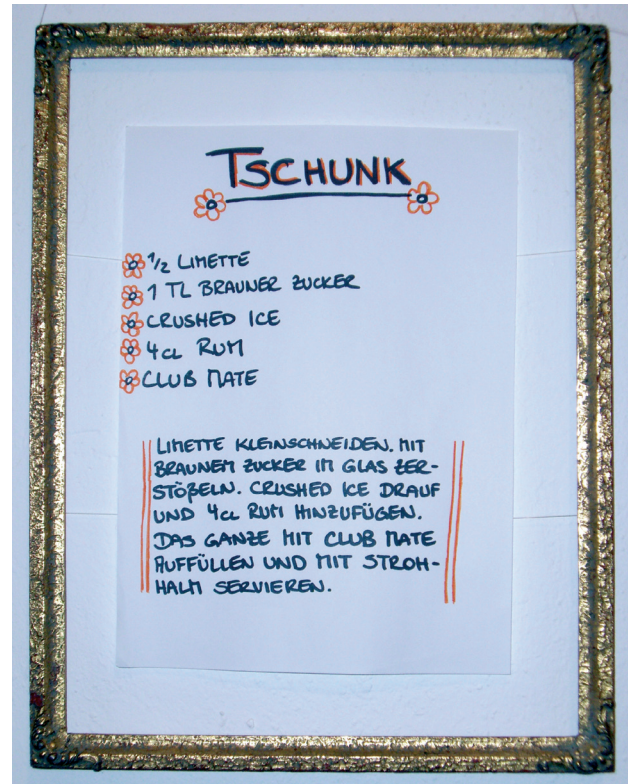 TSCHUNK
1/2 LIMETTE
1 TL BRAUNER ZUCKER
CRUSHED ICE
4cl RUM
CLUB MATE
LIMETTE KLEINSCHNEIDEN. MIT
BRAUNEM ZUCKER IM GLAS ZER-
STÖßELN. CRUSHED ICE DRAUF
UND 4cl RUM HINZUFÜGEN.
DAS GANZE MIT CLUB MATE
AUFFÜLLEN UND MIT STROH-
HALM SERVIEREN.